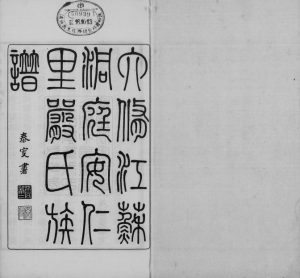 六修江蘇
洞庭安仁
里嚴氏族
譜
泰叟書